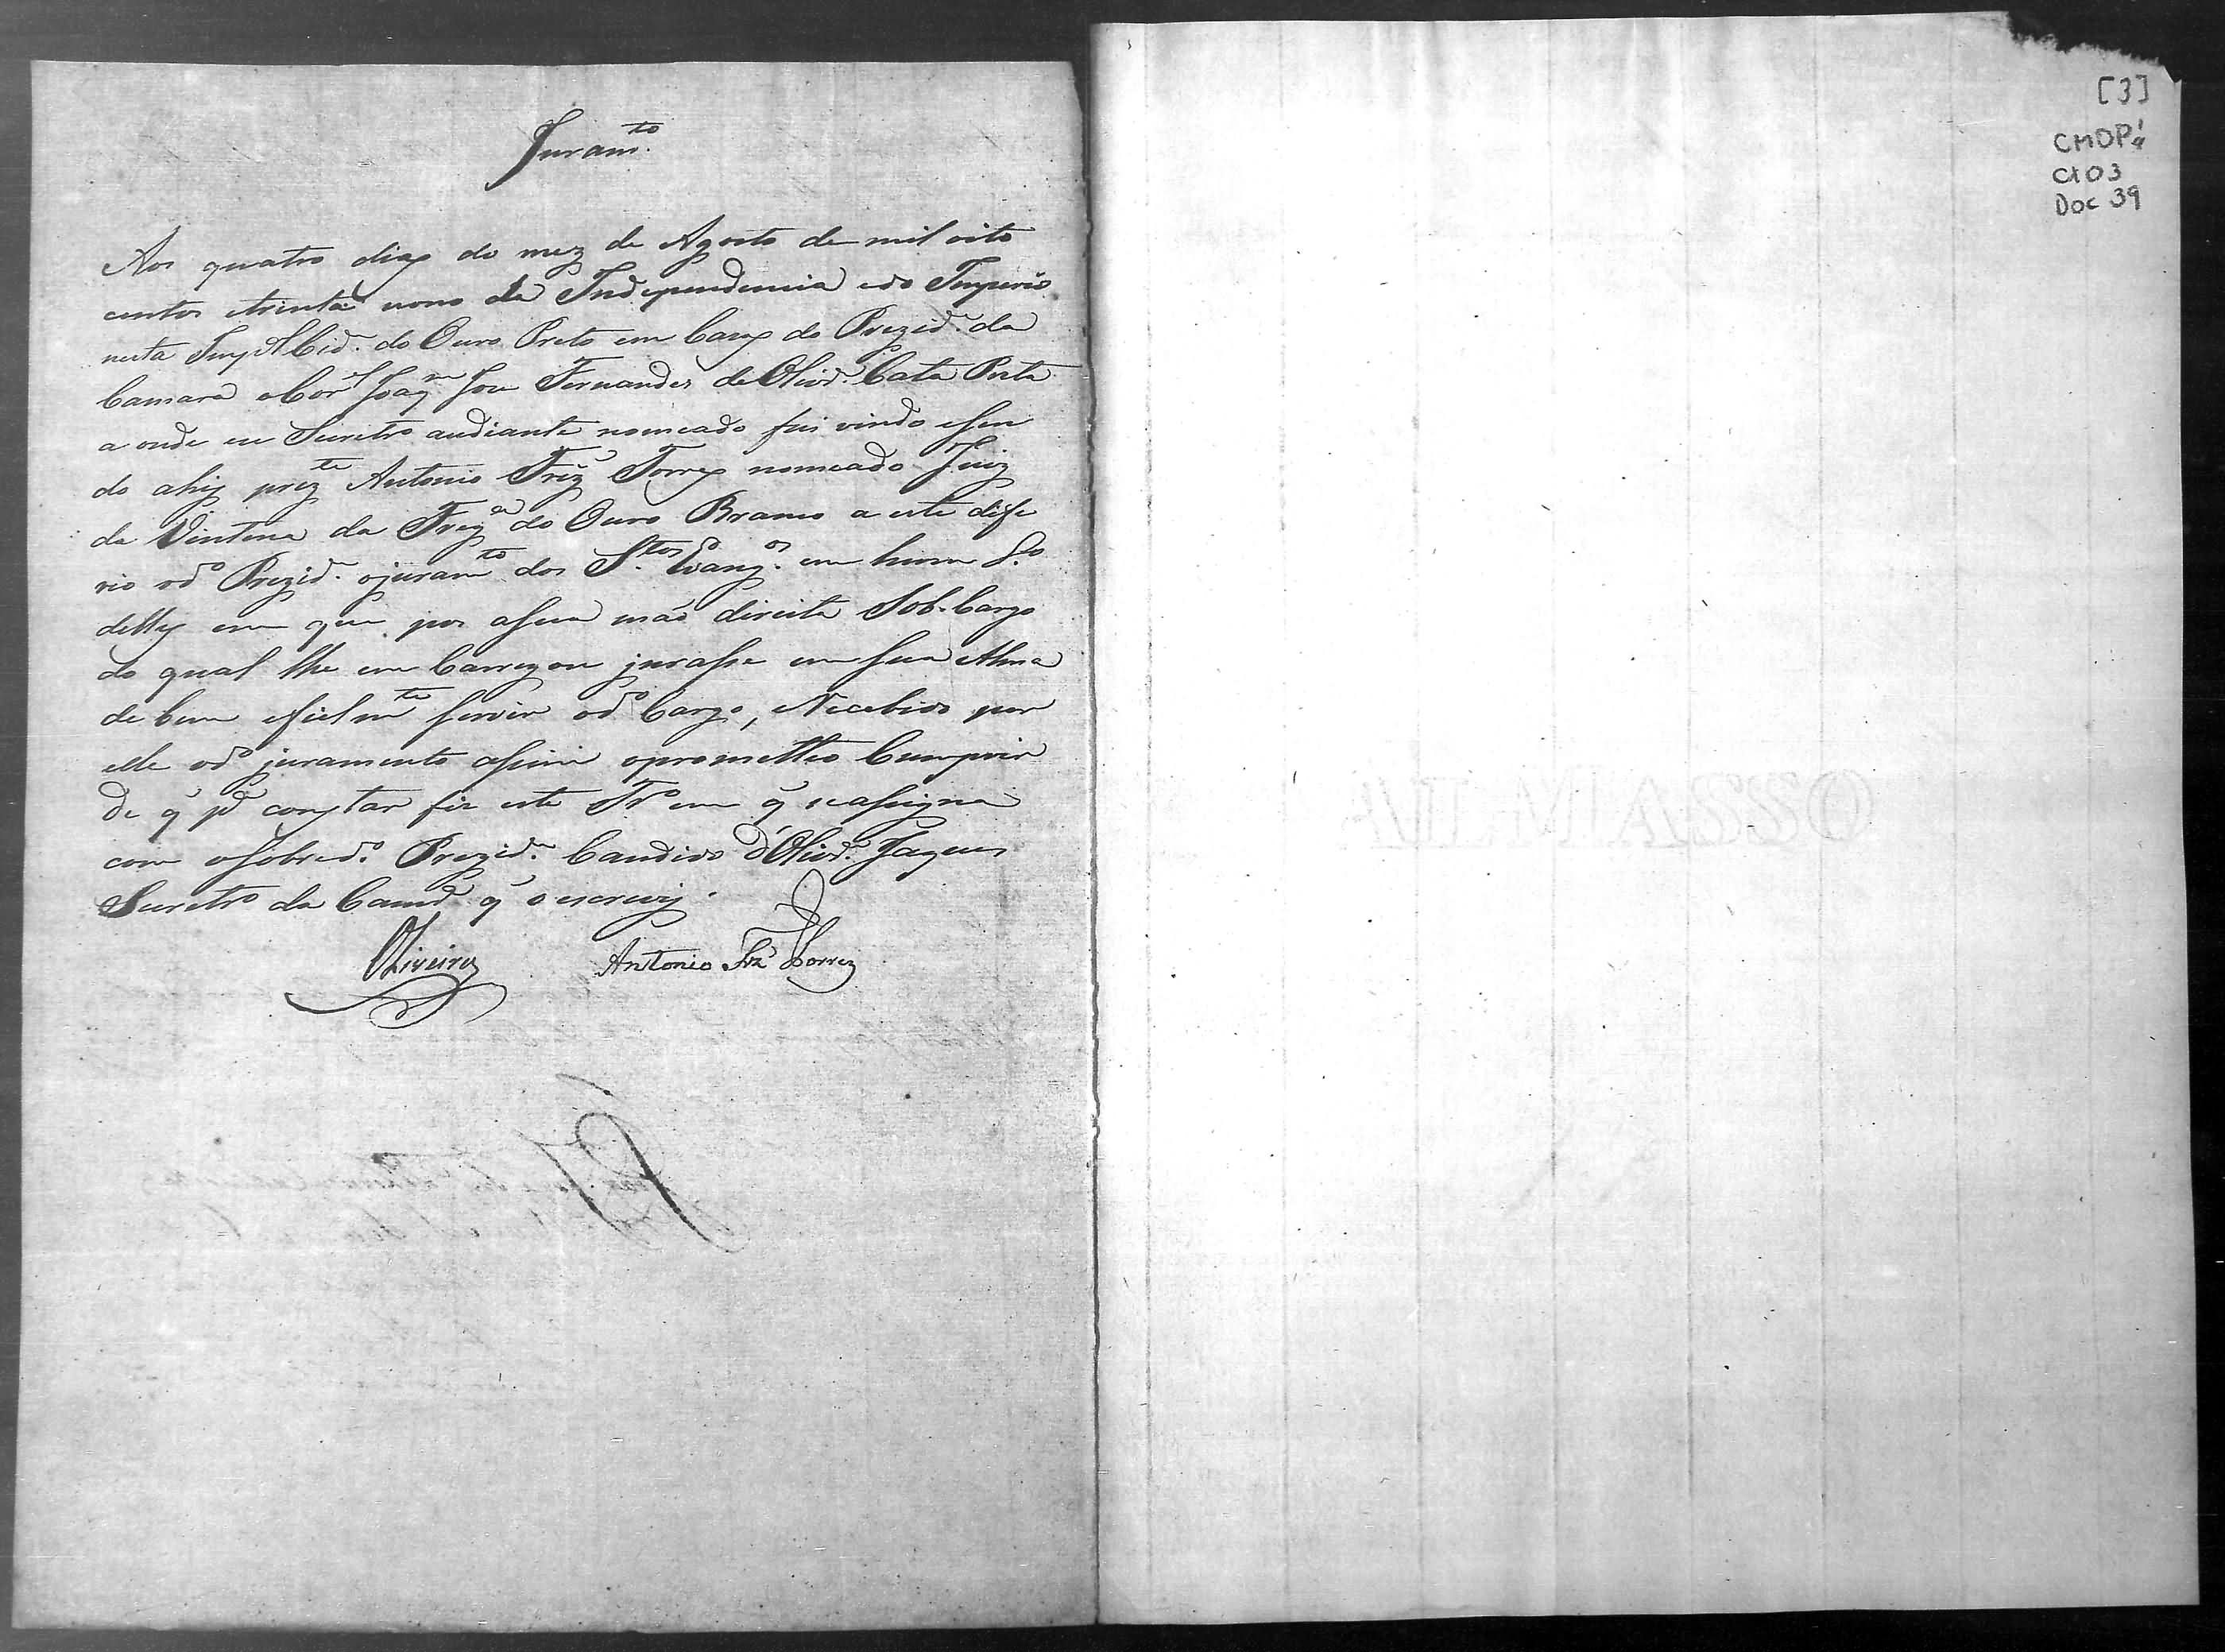 Juram.to
Aos quatro dias do mez de Agosto de mil oito
centos etrinta nono da Independencia edo Imperio
nesta Imp.al Cid.e do Ouro Preto em Caza do Prezid.e da
Camara oCor.el Joaq.m Joze Fernandes de Olivr.a Cata Preta
a onde eu Secretr.o audiante nomeado fui vindo esen
do ahy prez.te Antonio Friz' Torres nomeado Juiz
da Vintena da Freg.a do Ouro Branco a este dife
rio od.o Prezid.e ojuram.to dos S.tos Evang.os em hum L.o
delles em que pos asua mão direita Sob-Cargo
do qual lhe em Carregou jurasse em sua Alma
de bem efielm.te servir od.o Cargo, eRecebido por
elle od.o juramento assim oprometteo Cumprir
De q̃ p.a constar fiz este Tr.o em q̃ seassigna
com osobred.o Prezid.e Candido d'Olivr.a Jaques
Secretr.o da Camr.a q̃ o escrevy.
Oliveira Antonio Frz' Torres
[3]
CMOP
CX03
Doc 39